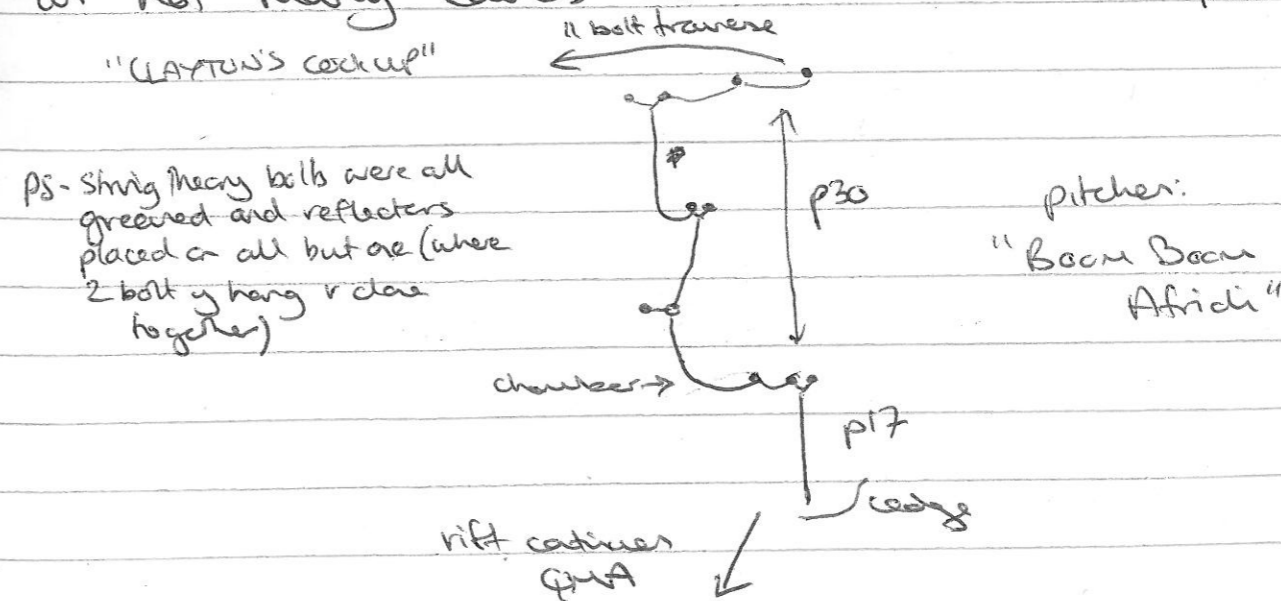 11 bolt traverse
"CLAYTON'S cockup"
PS - String Theory bolts were all
greened and reflectors
placed on all but one (where
2 bolt y hang v close
together)
p30
pitches:
"Boom Boom
Afridi"
chamber →
p17
ledge
rift continues
QMA